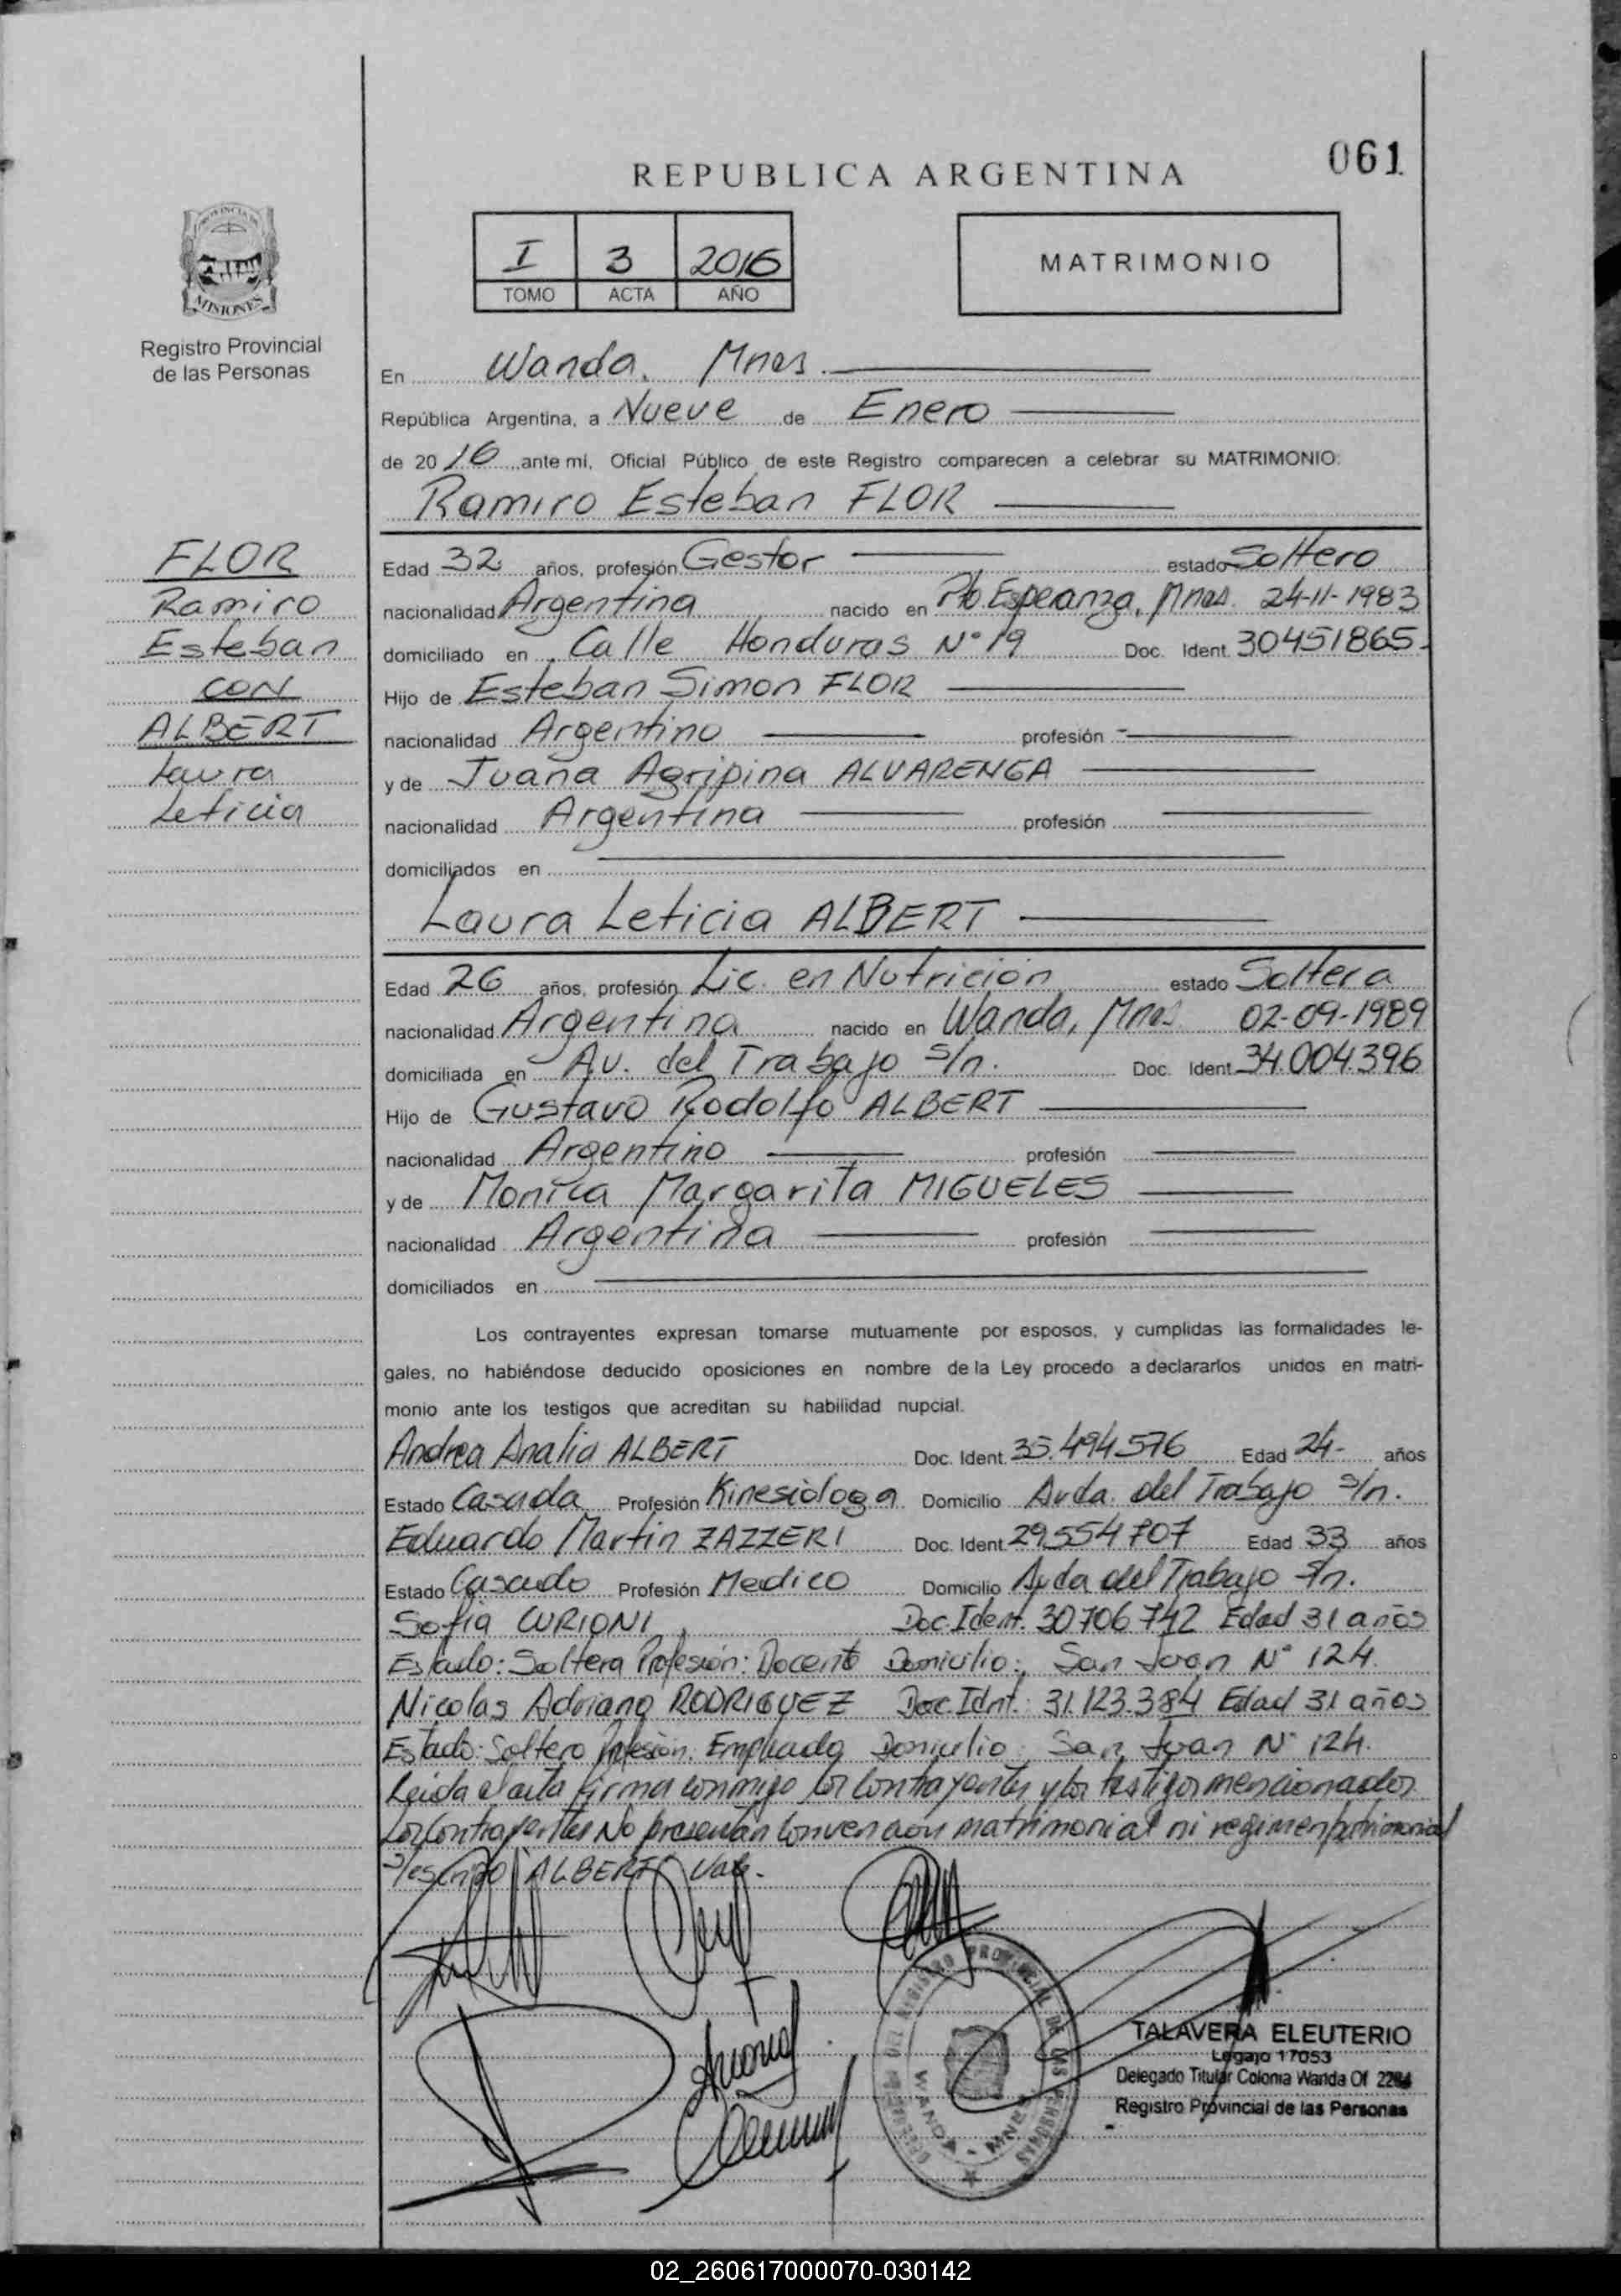 061
REPUBLICA ARGENTINA
PROVINCIA DE
MISIONES
Registro Provincial
de las Personas
I 3 2016
TOMO ACTA AÑO
MATRIMONIO
En Wanda, Mnes
República Argentina, a Nueve de Enero
de 2016 ante mi, Oficial Público de este Registro comparecen a celebrar su MATRIMONIO:
Ramiro Esteban FLOR
FLOR
Ramiro
Esteban
CON
ALBERT
Laura
Leticia
Edad 32 años, profesión Gestor estado Soltero
nacionalidad Argentina nacido en Pto. Esperanza, Mnes. 24-11-1983
domiciliado en Calle Honduras N° 19 Doc. Ident. 30451865.
Hijo de Esteban Simon FLOR
nacionalidad Argentino profesión
y de Juana Agripina ALVARENGA
nacionalidad Argentina profesión
domiciliados en
Laura Leticia ALBERT
Edad 26 años, profesión Lic. en Nutrición estado Soltera
nacionalidad Argentina nacido en Wanda, Mnes 02-09-1989
domiciliada en Av. del Trabajo s/n. Doc. Ident. 34.004.396
Hijo de Gustavo Rodolfo ALBERT
nacionalidad Argentino profesión
y de Monica Margarita MIGUELES
nacionalidad Argentina profesión
domiciliados en
Los contrayentes expresan tomarse mutuamente por esposos, y cumplidas las formalidades le-
gales, no habiéndose deducido oposiciones en nombre de la Ley procedo a declararlos unidos en matri-
monio ante los testigos que acreditan su habilidad nupcial.
Andrea Analia ALBERT Doc. Ident. 35.494.576 Edad 24- años
Estado Casada Profesión Kinesióloga Domicilio Avda. del Trabajo s/n.
Eduardo Martin ZAZZERI Doc. Ident. 29.554707 Edad 33 años
Estado Casado Profesión Medico Domicilio Avda del Trabajo s/n.
Sofia CURIONI Doc. Ident. 30706742 Edad 31 años
Estado: Soltera Profesión: Docente Domicilio: San Juan N° 124.
Nicolas Adriano RODRIGUEZ Doc. Idnt.: 31.123.384 Edad 31 años
Estado: Soltero Profesión: Empleado Domicilio: San Juan N° 124.
Leida el acta firma conmigo los contrayentes y los testigos mencionados
Los contrayentes No presentan convencion matrimonial ni regimen patrimonial
S/escrito ALBERT Vale.
REGISTRO PROVINCIAL DE LAS PERSONAS
WANDA - MNES
TALAVERA ELEUTERIO
Legajo 17053
Delegado Titular Colonia Wanda Of 2284
Registro Provincial de las Personas
02_260617000070-030142